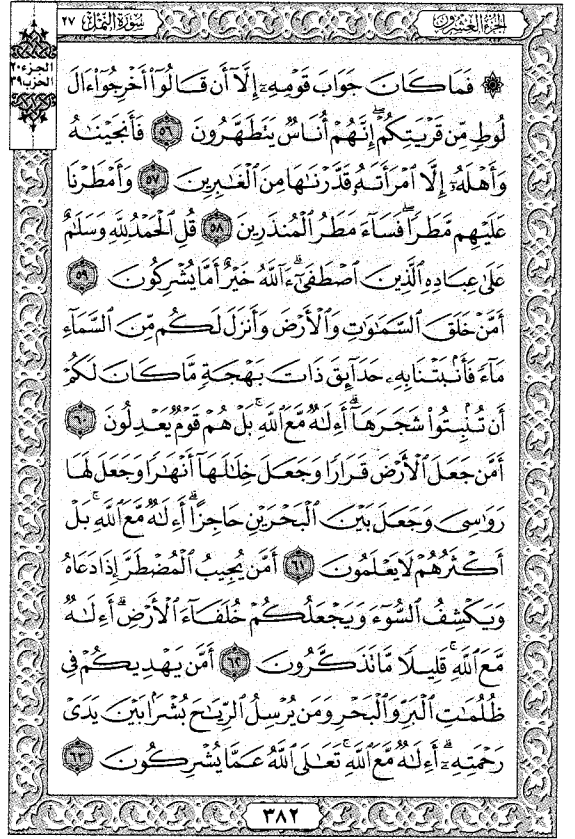 سُورَةُ النَّمْلِ ٢٧
الجُزْءُ العِشْرُونَ
الجزء ٢٠
الحزب ٣٩
۞ فَمَا كَانَ جَوَابَ قَوْمِهِۦٓ إِلَّآ أَن قَالُوٓا۟ أَخْرِجُوٓا۟ ءَالَ
لُوطٍ مِّن قَرْيَتِكُمْ ۖ إِنَّهُمْ أُنَاسٌ يَتَطَهَّرُونَ ٥٦ فَأَنجَيْنَٰهُ
وَأَهْلَهُۥٓ إِلَّا ٱمْرَأَتَهُۥ قَدَّرْنَٰهَا مِنَ ٱلْغَٰبِرِينَ ٥٧ وَأَمْطَرْنَا
عَلَيْهِم مَّطَرًا ۖ فَسَآءَ مَطَرُ ٱلْمُنذَرِينَ ٥٨ قُلِ ٱلْحَمْدُ لِلَّهِ وَسَلَٰمٌ
عَلَىٰ عِبَادِهِ ٱلَّذِينَ ٱصْطَفَىٰٓ ۗ ءَآللَّهُ خَيْرٌ أَمَّا يُشْرِكُونَ ٥٩
أَمَّنْ خَلَقَ ٱلسَّمَٰوَٰتِ وَٱلْأَرْضَ وَأَنزَلَ لَكُم مِّنَ ٱلسَّمَآءِ
مَآءً فَأَنۢبَتْنَا بِهِۦ حَدَآئِقَ ذَاتَ بَهْجَةٍ مَّا كَانَ لَكُمْ
أَن تُنۢبِتُوا۟ شَجَرَهَآ ۗ أَءِلَٰهٌ مَّعَ ٱللَّهِ ۚ بَلْ هُمْ قَوْمٌ يَعْدِلُونَ ٦٠
أَمَّن جَعَلَ ٱلْأَرْضَ قَرَارًا وَجَعَلَ خِلَٰلَهَآ أَنْهَٰرًا وَجَعَلَ لَهَا
رَوَٰسِىَ وَجَعَلَ بَيْنَ ٱلْبَحْرَيْنِ حَاجِزًا ۗ أَءِلَٰهٌ مَّعَ ٱللَّهِ ۚ بَلْ
أَكْثَرُهُمْ لَا يَعْلَمُونَ ٦١ أَمَّن يُجِيبُ ٱلْمُضْطَرَّ إِذَا دَعَاهُ
وَيَكْشِفُ ٱلسُّوٓءَ وَيَجْعَلُكُمْ خُلَفَآءَ ٱلْأَرْضِ ۗ أَءِلَٰهٌ
مَّعَ ٱللَّهِ ۚ قَلِيلًا مَّا تَذَكَّرُونَ ٦٢ أَمَّن يَهْدِيكُمْ فِى
ظُلُمَٰتِ ٱلْبَرِّ وَٱلْبَحْرِ وَمَن يُرْسِلُ ٱلرِّيَٰحَ بُشْرًۢا بَيْنَ يَدَىْ
رَحْمَتِهِۦٓ ۗ أَءِلَٰهٌ مَّعَ ٱللَّهِ ۚ تَعَٰلَى ٱللَّهُ عَمَّا يُشْرِكُونَ ٦٣
٣٨٢